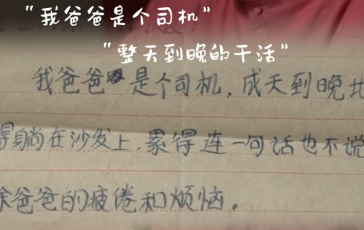 “我爸爸是个司机”
“整天到晚的干活”
我爸爸是个司机,成天到晚地
得躺在沙发上,累得连一句话也不说
爸爸的疲倦和烦恼。